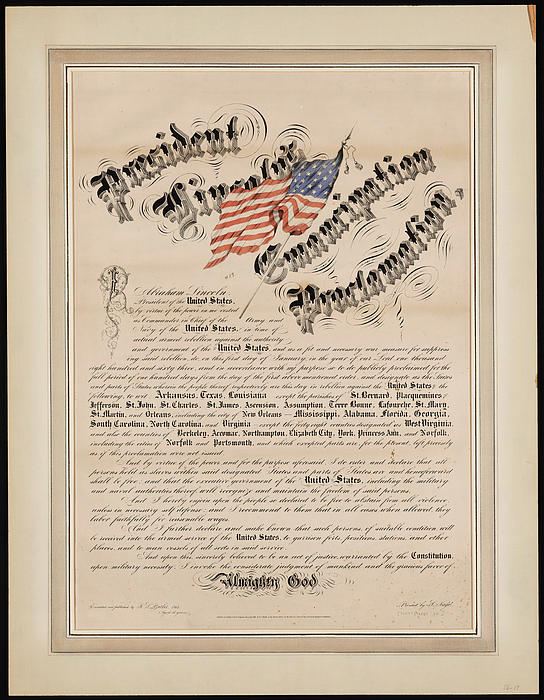 President
Lincoln's
Emancipation
Proclamation.
I, Abraham Lincoln,
President of the United States,
by virtue of the power in me vested
as Commander in Chief of the Army and
Navy of the United States, in time of
actual armed rebellion against the authority
and government of the United States, and as a fit and necessary war measure for suppress-
ing said rebellion, do, on this first day of January, in the year of our Lord one thousand
eight hundred and sixty three, and in accordance with my purpose so to do publicly proclaimed for the
full period of one hundred days from the day of the first above mentioned order, and designate as the States
and parts of States wherein the people thereof respectively are this day in rebellion against the United States the
following, to wit: Arkansas, Texas, Louisiana except the parishes of St. Bernard, Placquemines,
Jefferson, St. John, St. Charles, St. James, Ascension, Assumption, Terre Bonne, Lafourche, St. Mary,
St. Martin, and Orleans, including the city of New Orleans — Mississippi, Alabama, Florida, Georgia,
South Carolina, North Carolina, and Virginia except the forty eight counties designated as West Virginia
and also the counties of Berkeley, Accomac, Northampton, Elizabeth City, York, Princess Ann, and Norfolk,
including the cities of Norfolk and Portsmouth, and which excepted parts are, for the present, left precisely
as if this proclamation were not issued.
And by virtue of the power and for the purpose aforesaid, I do order and declare that all
persons held as slaves within said designated States and parts of States are and henceforward
shall be free; and that the executive government of the United States, including the military
and naval authorities thereof, will recognize and maintain the freedom of said persons.
And I hereby enjoin upon the people so declared to be free to abstain from all violence,
unless in necessary self defense; and I recommend to them that in all cases when allowed, they
labor faithfully for reasonable wages.
And I further declare and make known that such persons, of suitable condition, will
be received into the armed service of the United States, to garrison forts, positions, stations, and other
places, and to man vessels of all sorts in said service.
And upon this, sincerely believed to be an act of justice, warranted by the Constitution,
upon military necessity, I invoke the considerate judgment of mankind and the gracious favor of
Almighty God
Executed and published by
Printed by